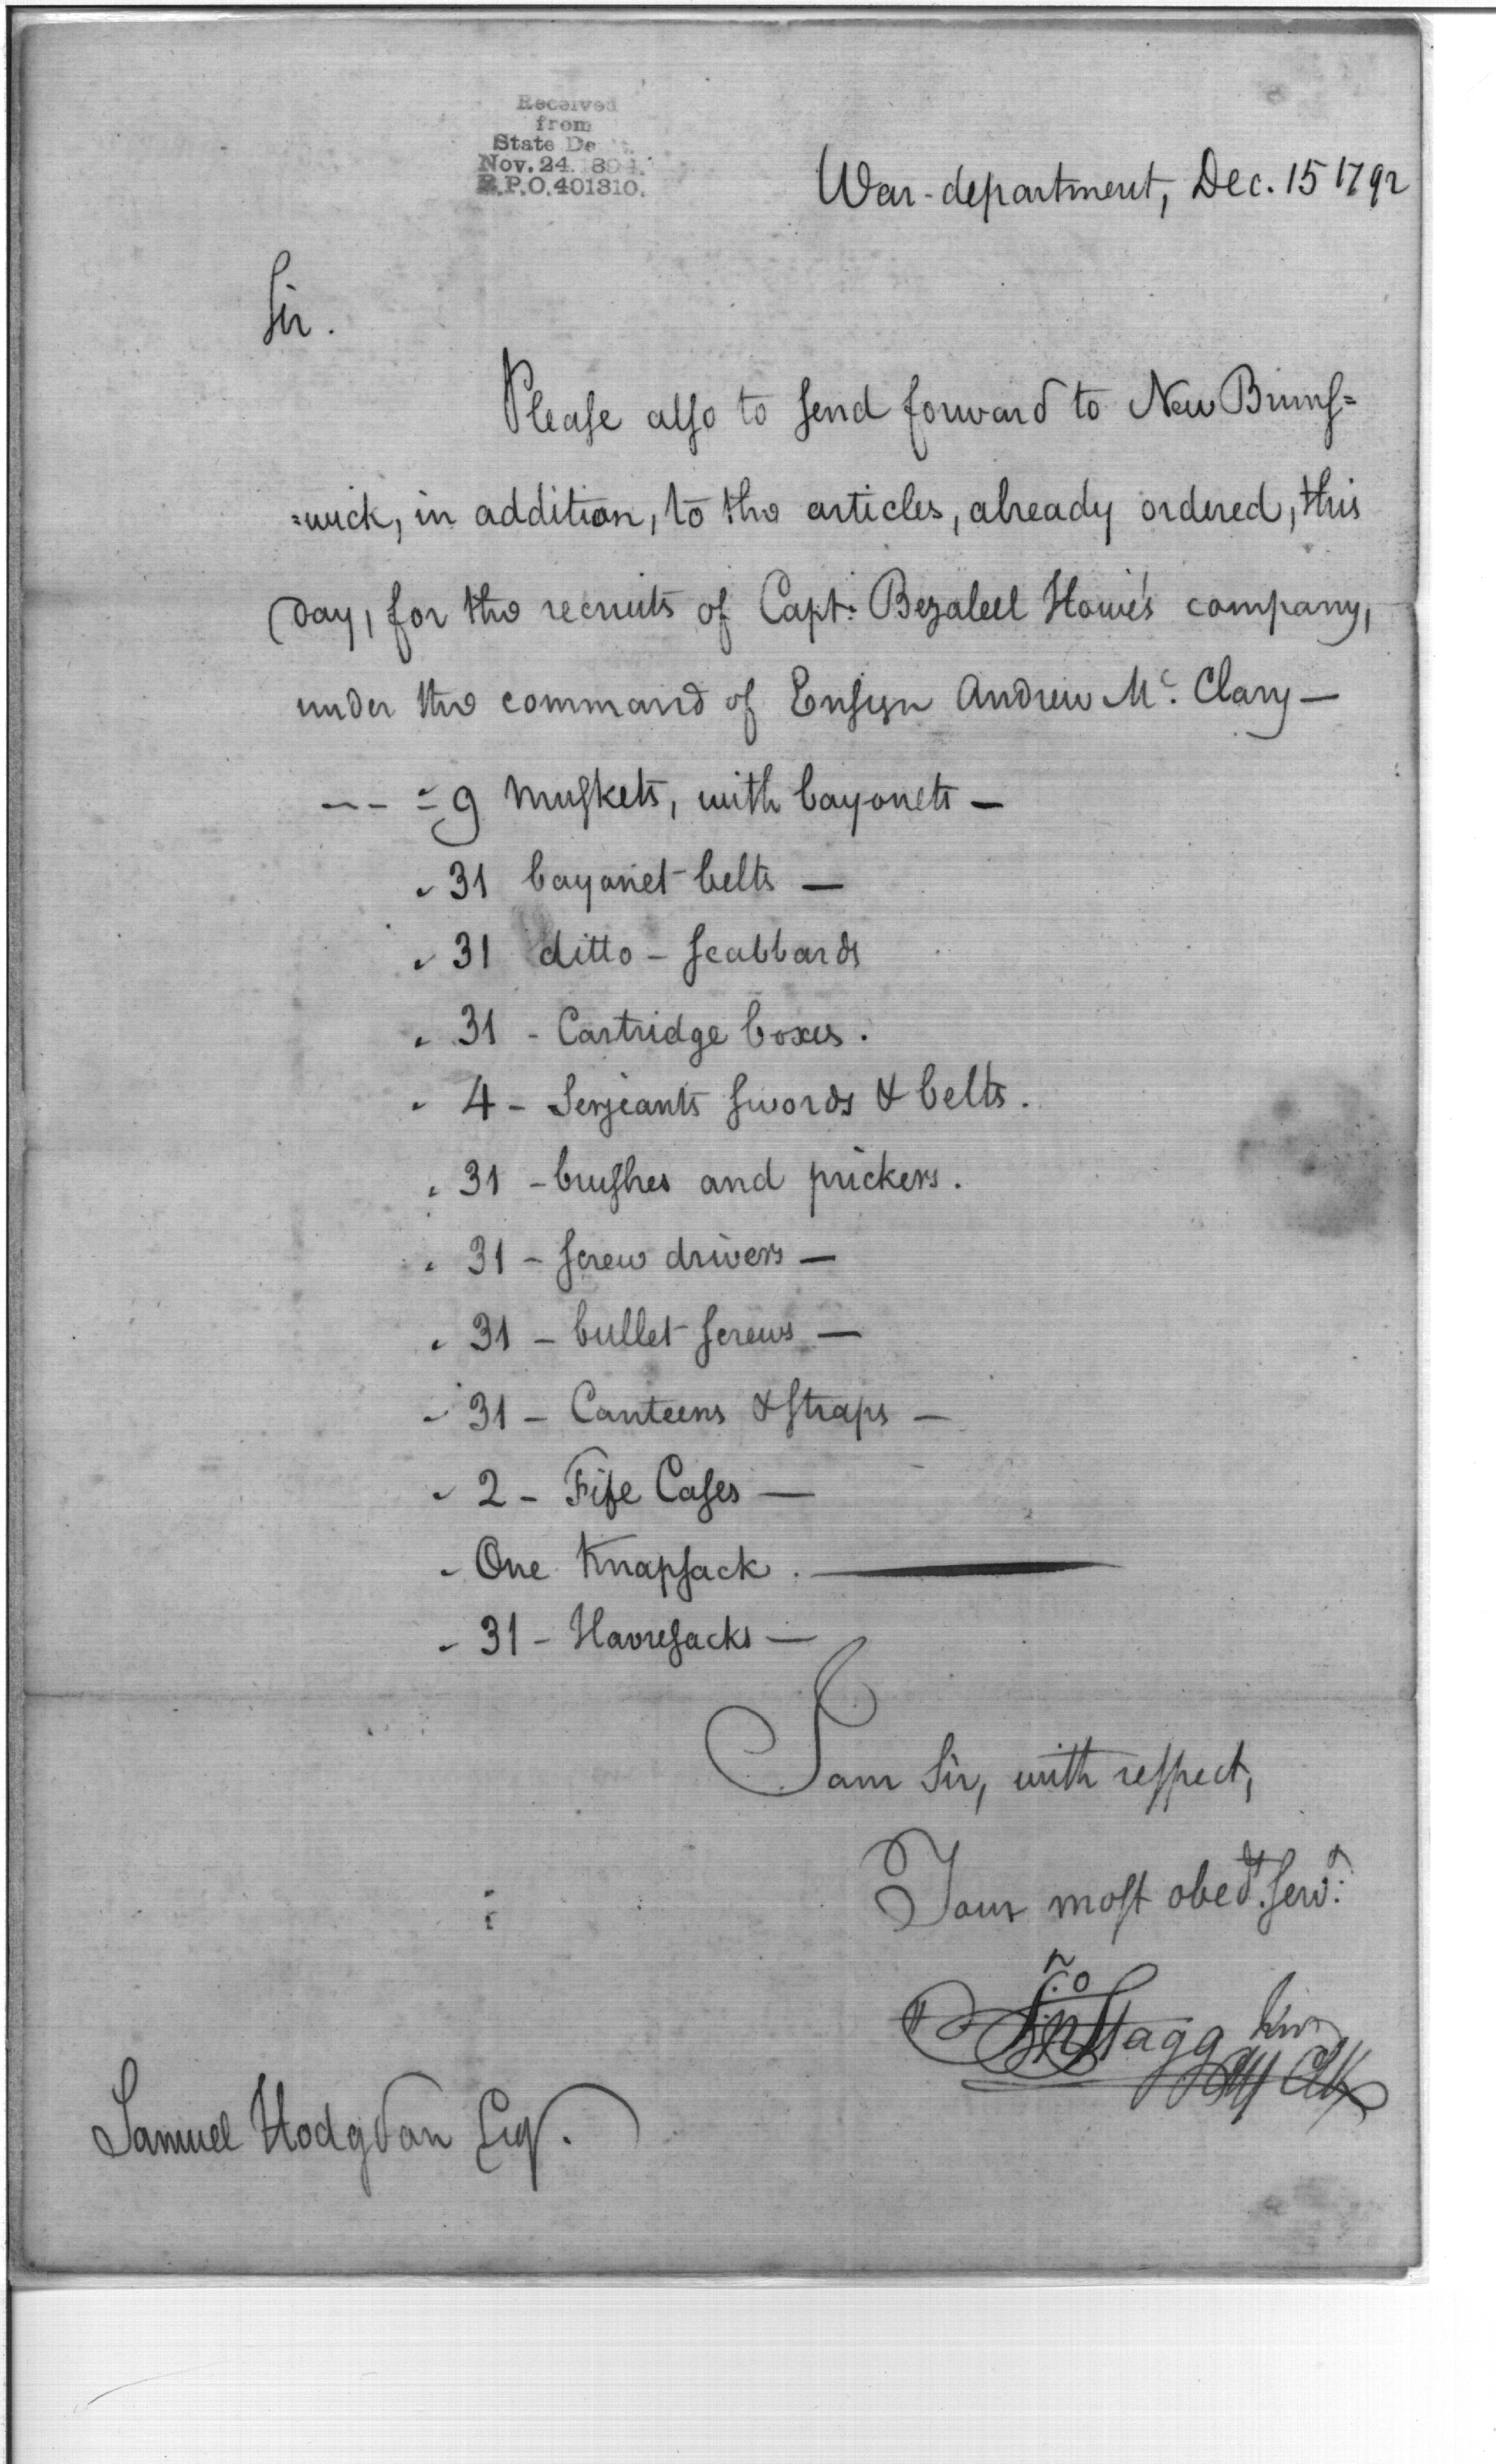 Received
from
State De t.
Nov. 24. 1894.
R.P.O. 401310.
War-department, Dec. 15 1792
Sir.
Please also to send forward to New Bruns=
=wick, in addition, to the articles, already ordered, this
day, for the recruits of Capt: Bezaleel Howe's company,
under the command of Ensign Andrew Mc. Clary —
9 Muskets, with bayonets —
31 bayonet belts —
31 ditto - scabbards
31 - Cartridge boxes.
4 - Serjeants swords & belts.
31 - brushes and prickers.
31 - screw drivers —
31 - bullet screws —
31 - Canteens & straps —
2 - Fife Cases —
One Knapsack. —
31 - Havresacks —
I am Sir, with respect,
Your most obedt. servt:
Jno Stagg Junr
Samuel Hodgdon Esqr.